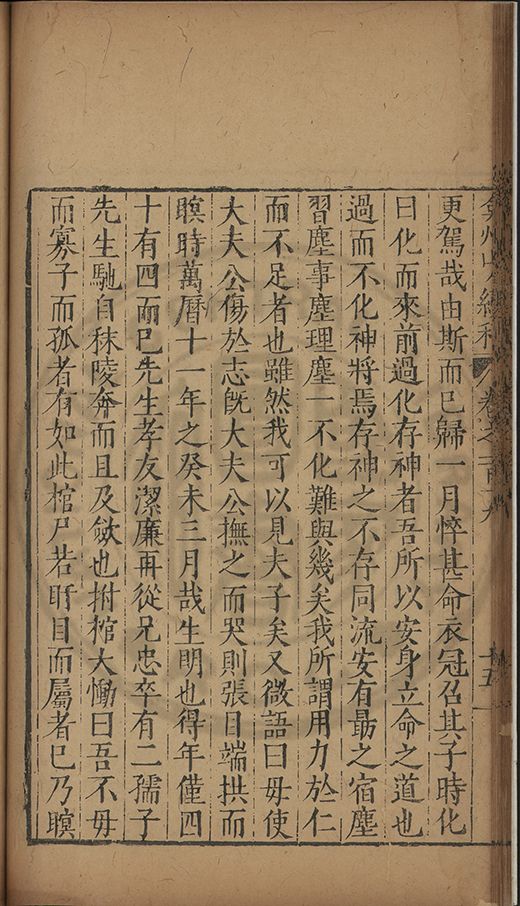 更駕哉由斯而已歸一月悴甚命衣冠召其子時化
曰化而來前過化存神者吾所以安身立命之道也
過而不化神將焉存神之不存同流安有最之宿塵
習塵事塵理塵一不化難與幾矣我所謂用力於仁
而不足者也雖然我可以見夫子矣又微語曰毋使
大夫公傷於志旣大夫公撫之而哭則張目端拱而
瞑時萬曆十一年之癸未三月哉生明也得年僅四
十有四而已先生孝友潔廉再從兄忠卒有二孺子
先生馳自秣陵奔而且及斂也拊棺大慟曰吾不毋
而寡子而孤者有如此棺尸若盱目而屬者巳乃瞑
卷之一百十九
十五